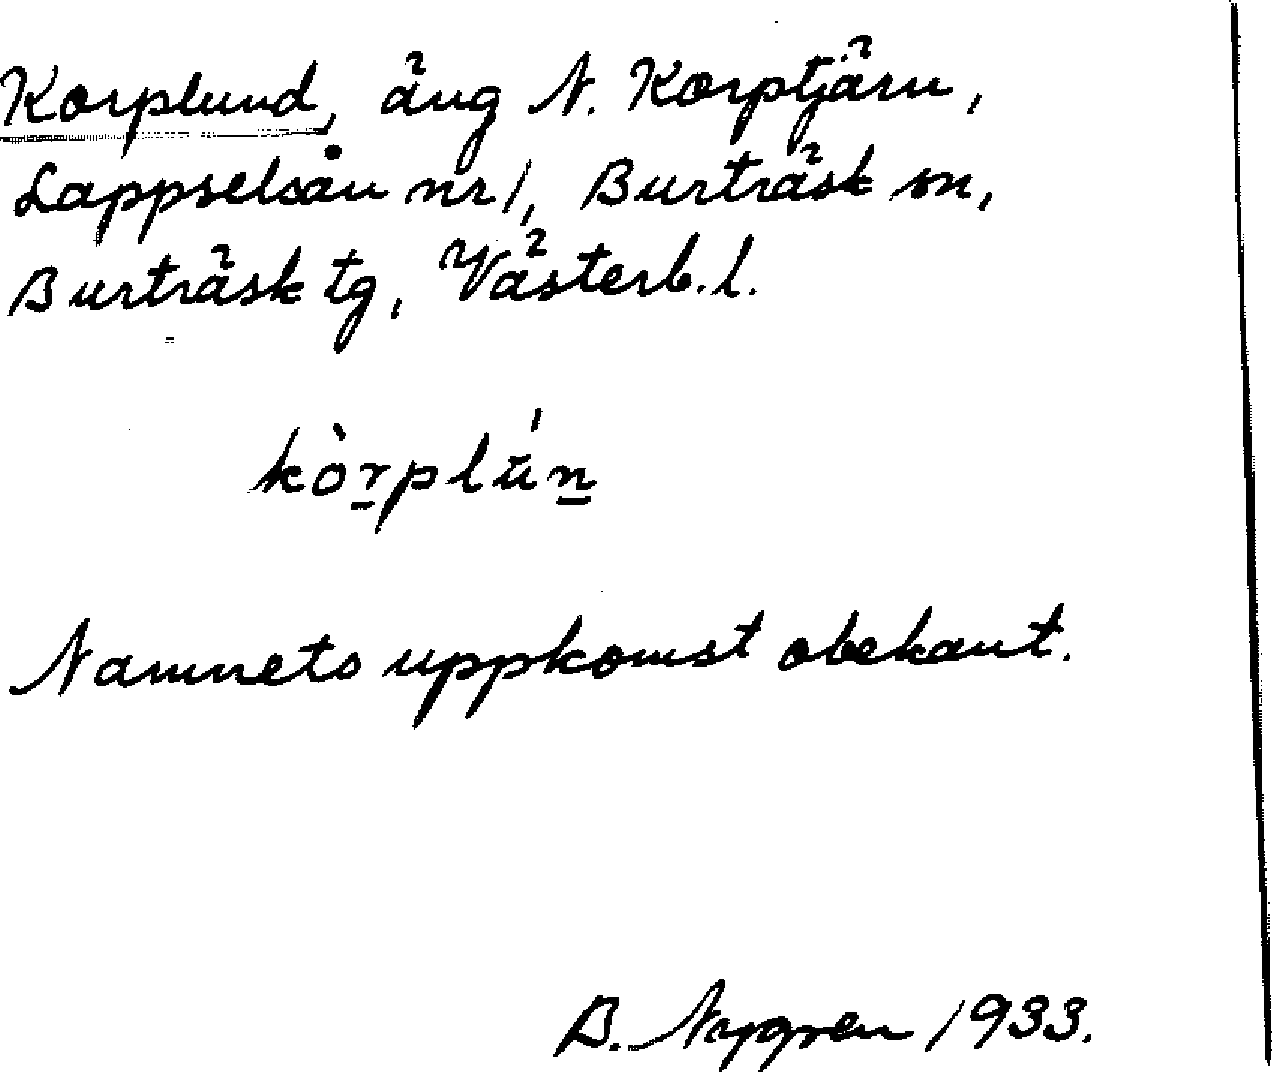 Korplund, äng N. Korptjärn,
Lappselsån nr 1, Burträsk sn,
Burträsk tg, Västerb. l.
kòrplún
Namnets uppkomst obekant.
B. Nygren 1933.